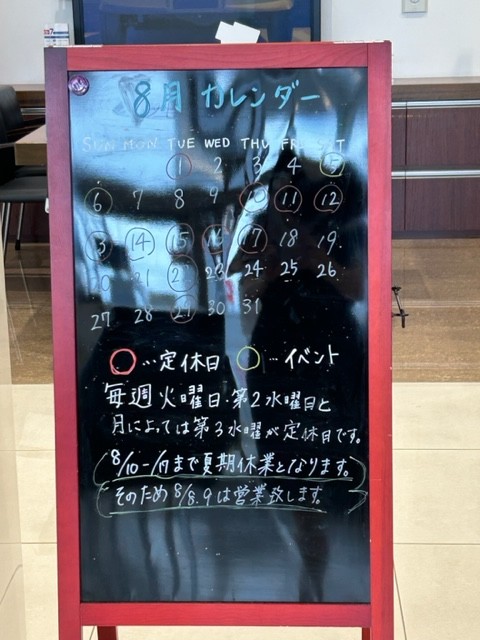 8月 カレンダー
SUN MON TUE WED THU FRI SAT
1 2 3 4 5
6 7 8 9 10 11 12
13 14 15 16 17 18 19
20 21 22 23 24 25 26
27 28 29 30 31
○…定休日 ○…イベント
毎週火曜日・第2水曜日と
月によっては第3水曜が定休日です。
8/10-/17まで夏期休業となります。
そのため8/8.9は営業致します。